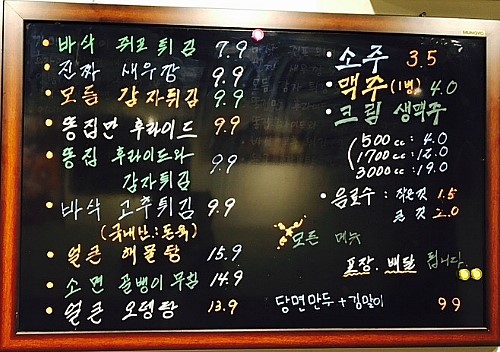 바삭 쥐포튀김 7.9
진짜 새우깡 9.9
모듬 감자튀김 9.9
똥집만 후라이드 9.9
똥집 후라이드와
감자튀김 9.9
바삭 고추튀김 9.9
(국내산:돈육)
얼큰 해물탕 15.9
소면 골뱅이 무침 14.9
얼큰 오뎅탕 13.9
소주 3.5
맥주(1병) 4.0
크림 생맥주
500cc : 4.0
1700cc : 12.0
3000cc : 19.0
음료수 : 작은것 1.5
큰것 2.0
모든 메뉴
포장. 배달 됩니다.
당면만두+김말이 9.9
MUNGYO